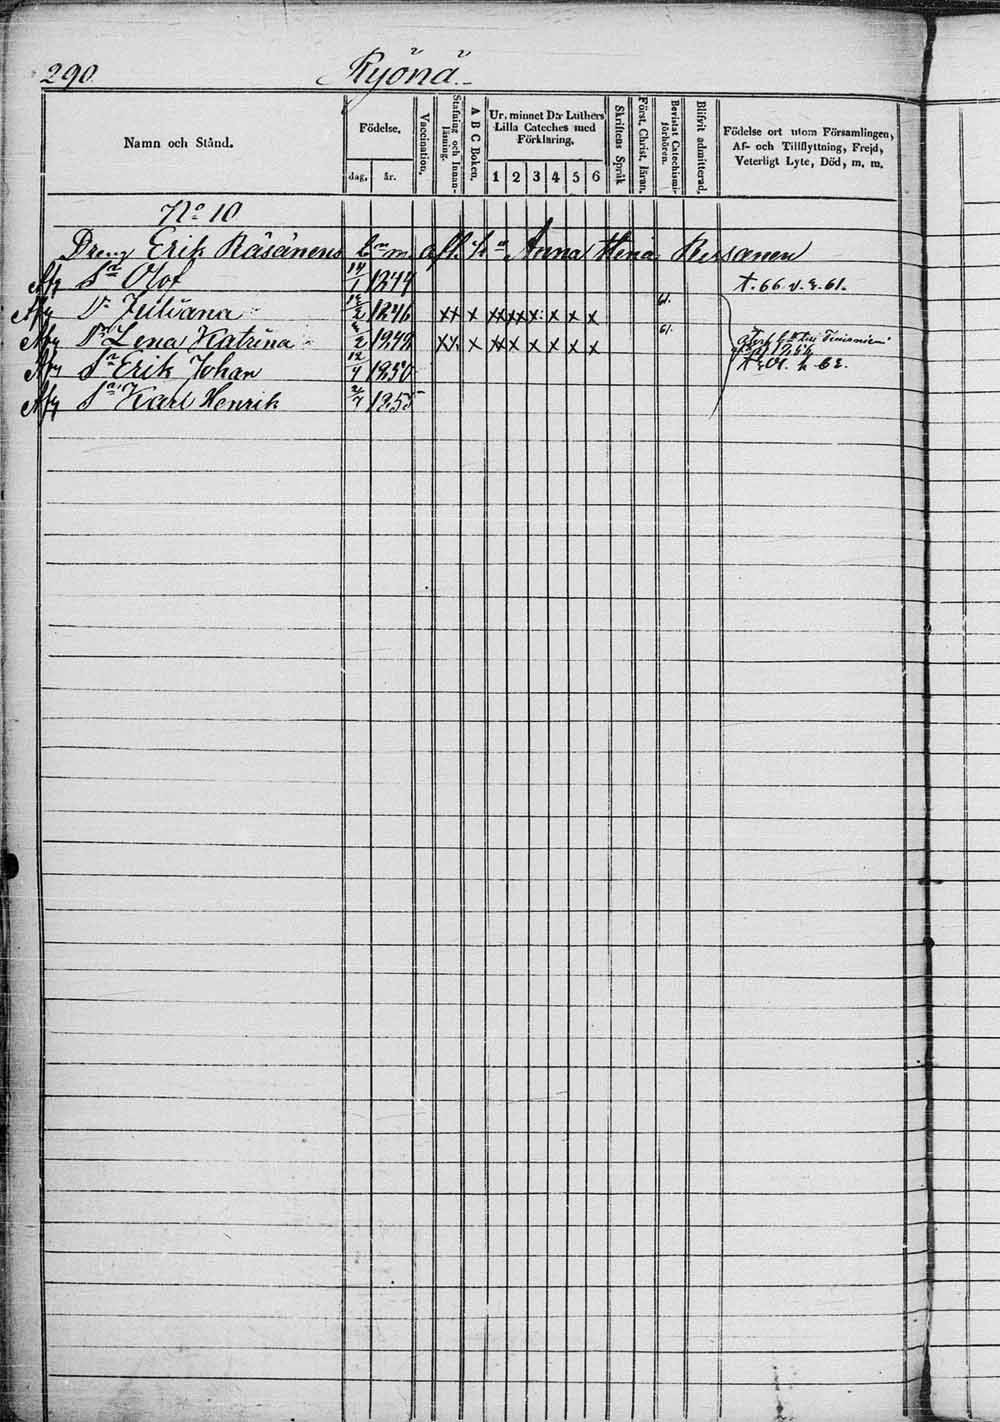 290. Kyönä.
Namn och Stånd.
Födelse,
dag, år.
Vaccination,
Stafning och Innan-
läsning.
A B C Boken.
Ur, minnet D:r Luthers
Lilla Cateches med
Förklaring.
1 2 3 4 5 6
Skriftens Språk
Först, Christ, läran,
Bevistat Catechismi-
förhören.
Blifvit admitterad,
Födelse ort utom Församlingen,
Af- och Tillflyttning, Frejd,
Veterligt Lyte, Död, m. m.
No 10
Dreng Erik Räsänens b:n m. afl. h:u Anna Rissanen
Afg Sn Olof 14/1 1844 †. 66. v. 2. 61.
Afg Dr Juliana 1846 xx x xx xx x x x x 61.
Afg Dr Lena Katrina 1849 xx x xx x x x x x 61.
Afg Sn Erik Johan 12/4 1850
Afg Sn Karl Henrik 2/7 1855